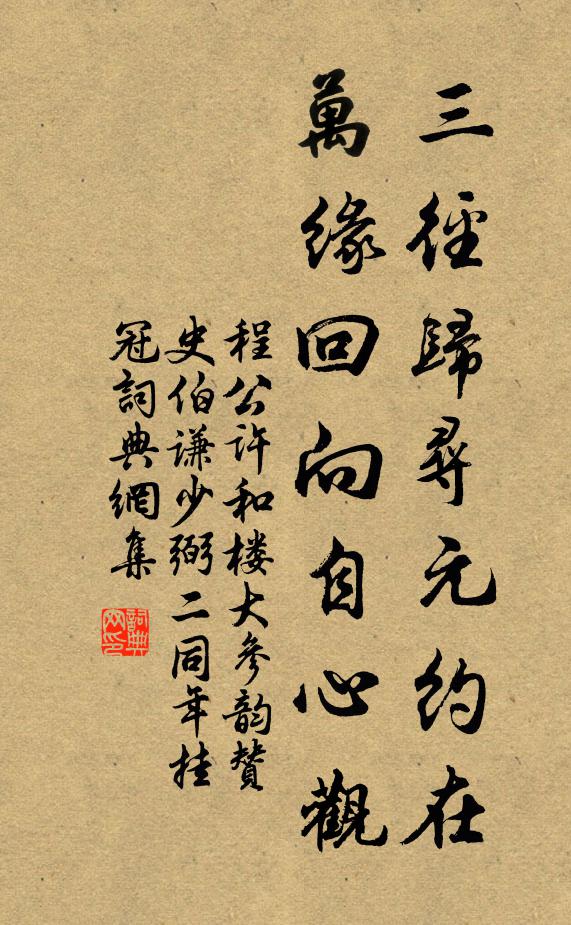 三徑歸尋元約在
萬緣回向自心觀
程公許和楼大參韵贊
史伯謙少弼二同年挂
冠詞典網集
詞典网印